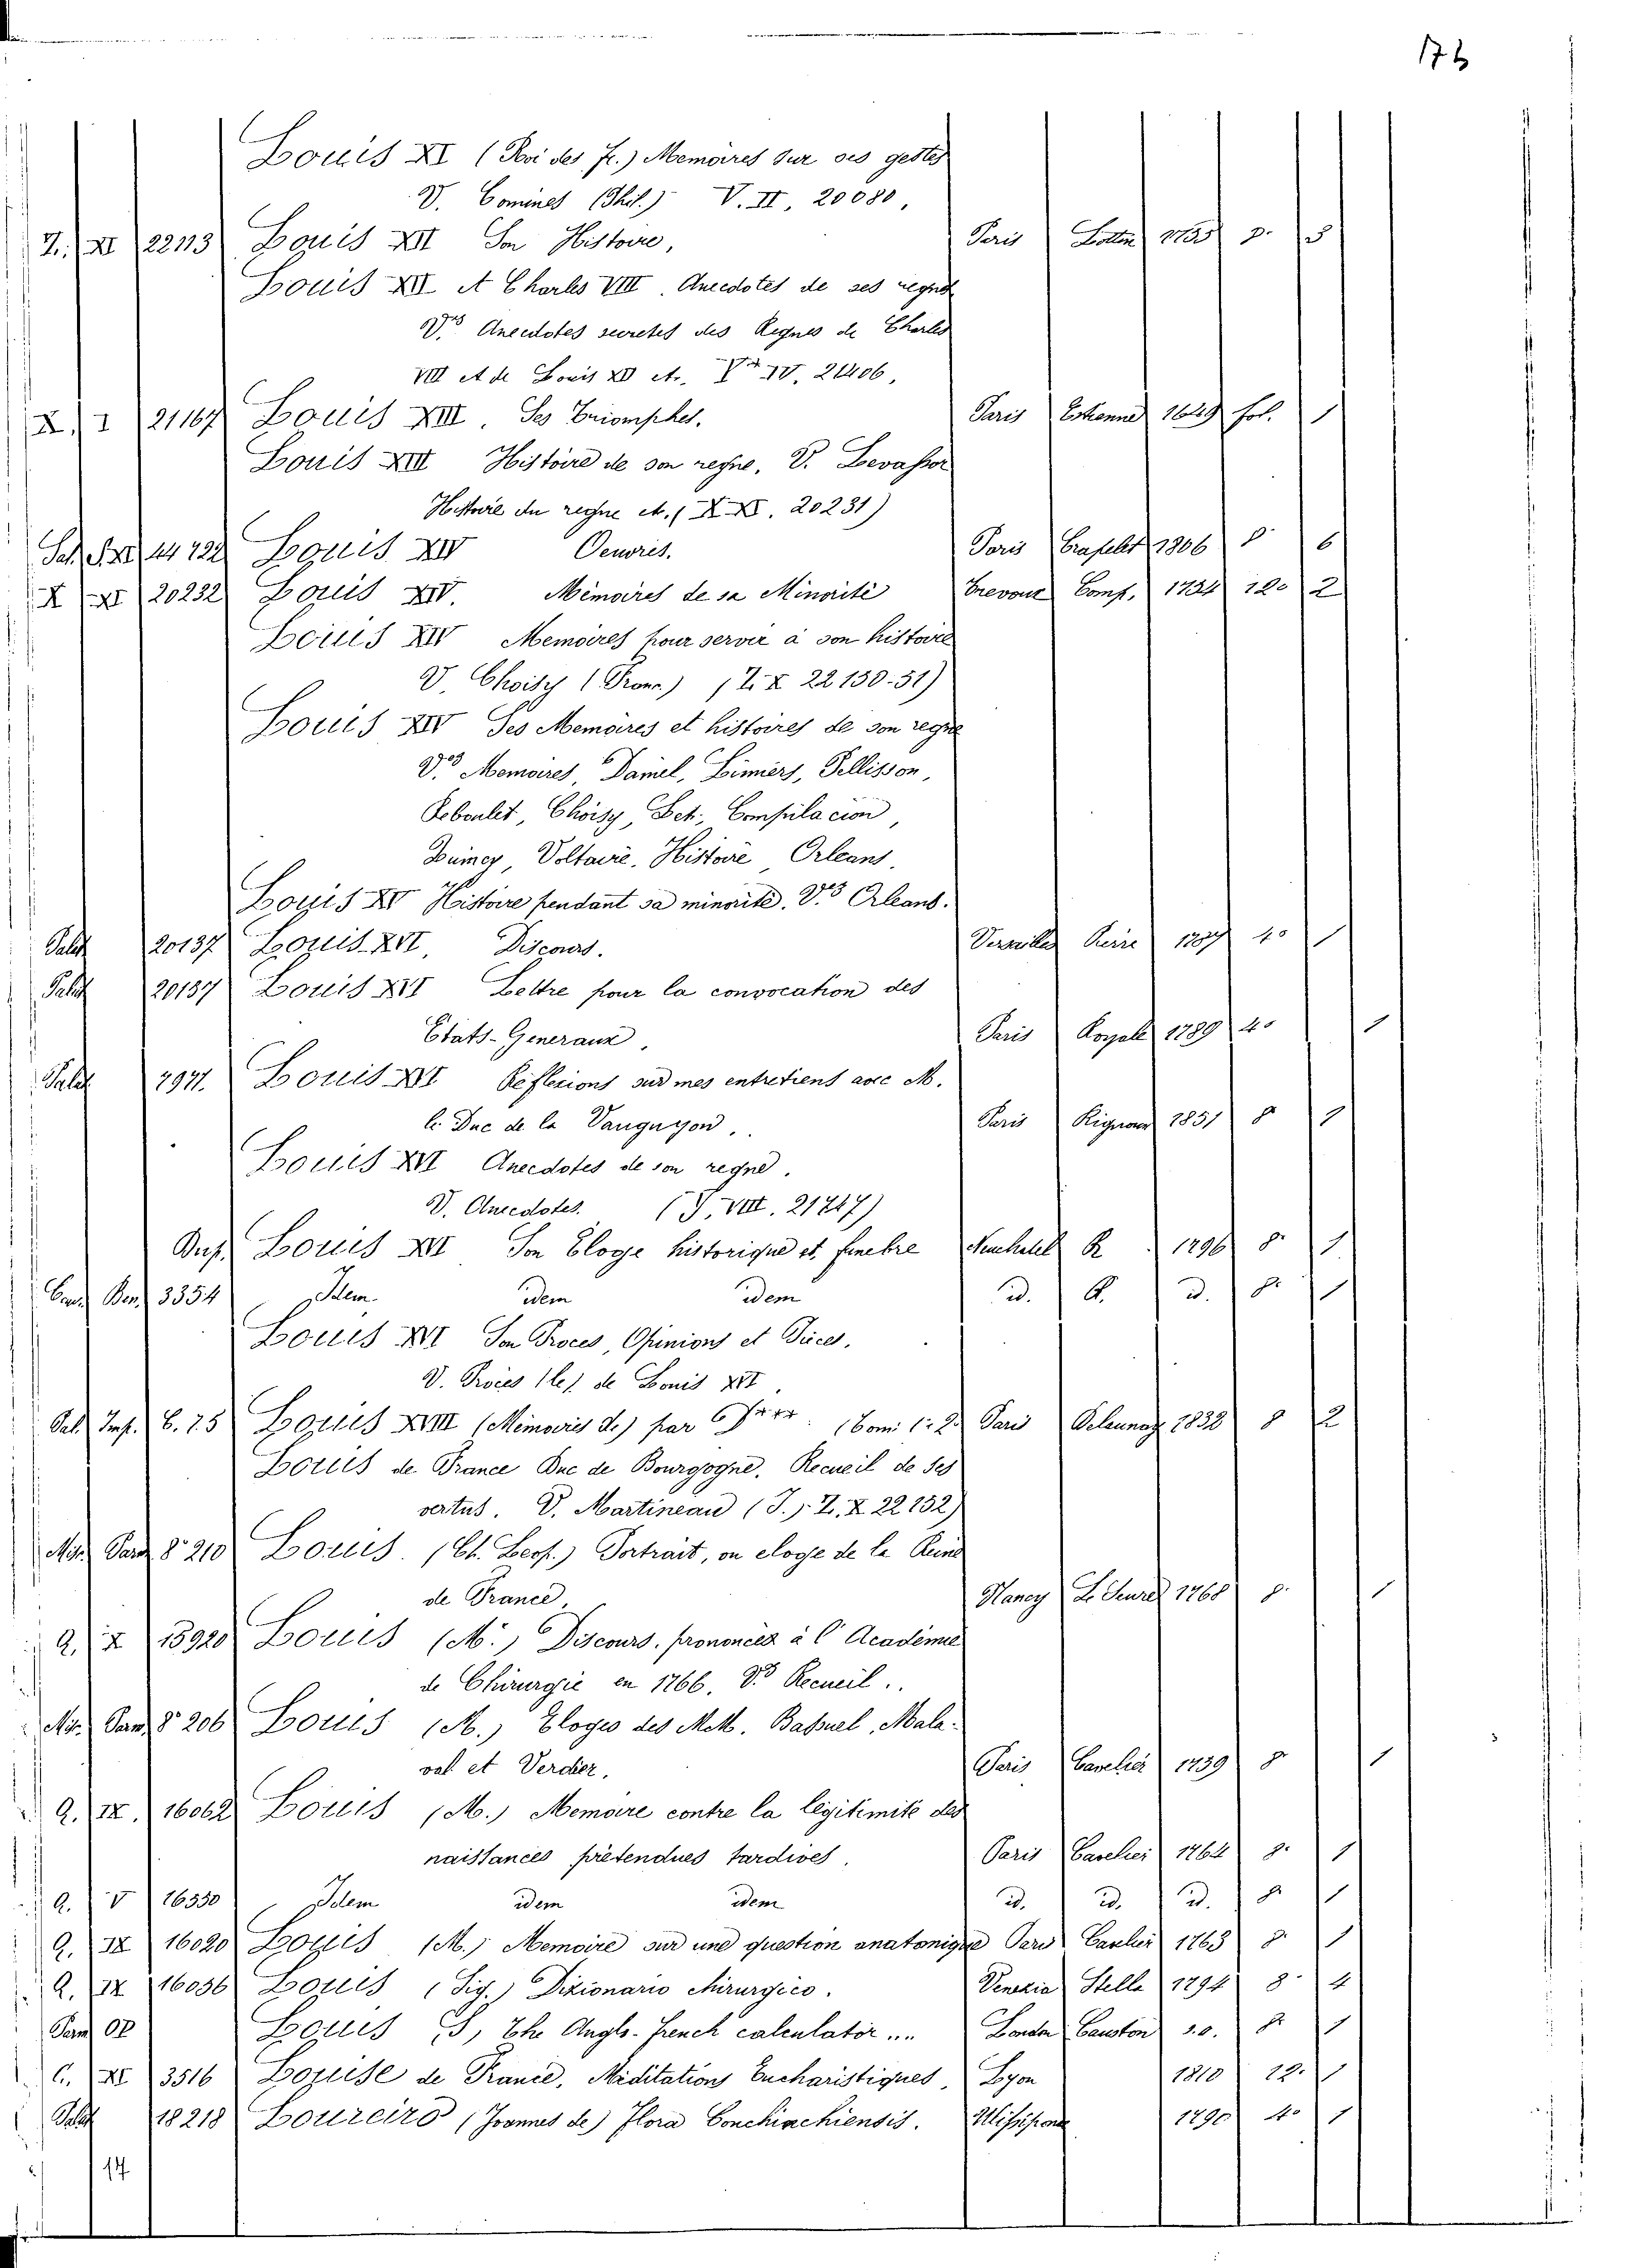 Louis XI (Roi des fr.) Memoires sur ses gestes
V. Comines (Phil.) V. II, 20080,
Z. XI 22113 Louis XII Son Histoire, Paris Lottin 1755 8. 3
Louis XII et Charles VIII. Anecdotes de ses regnes
V. Anecdotes secretes des Regnes de Charles
VIII et de Louis XII et. IV. 21406,
X. I 21167 Louis XIII. Ses Triomphes. Paris Estienne 1649 fol. 1
Louis XIII Histoire de son regne, V. Levassor
Histoire du regne et. (X XI. 20231)
14 122 Louis XIV Oeuvres. Paris 1806 8 6
X XI 20232 Louis XIV. Mémoires de sa Minorité Trevoux Comp. 1734 12o 2
Louis XIV Memoires pour servir à son histoire
V. Choisy (Franc.) (Z. X 22130-31)
Louis XIV Ses Memoires et histoires de son regne
Vos Memoires, Daniel, Limiers, Pellisson,
Reboulet, Choisy, Let., Compilacion,
Quincy, Voltaire, Histoire, Orleans.
Louis XV Histoire pendant sa minorité. Vos Orleans.
Palat 20137 Louis XVI, Discours. Versailles Pierre 1787 4o 1
Palat 20137 Louis XVI Lettre pour la convocation des
Etats-Generaux, Paris Royale 1789 4o 1
Palat 7971. Louis XVI Reflexions sur mes entretiens avec M.
le Duc de la Vauguyon, Paris 1851 8 1
Louis XVI Anecdotes de son regne.
V. Anecdotes. (J. VIII. 21747)
Dup. Louis XVI Son Eloge historique et funebre Neuchatel 1796 8. 1
3354 Idem idem idem id. id. 8. 1
Louis XVI Son Proces, Opinions et Pieces,
V. Proces (le) de Louis XVI,
Pal. Imp. C. 25 Louis XVIII (Mémoires de) par (Tom. 1. 2. Paris Delaunay 1832 8 2
Louis de France Duc de Bourgogne. Recueil de ses
vertus. V. Martineau (J.) Z. X 22132)
8o 210 Louis. (Ch. Leop.) Portrait, ou eloge de la Reine
de France, Nancy 1768 8. 1
Q. X 15920 Louis (M.) Discours, prononcés à l'Académie
de Chirurgie en 1766. Vo Recueil..
8o 206 Louis (M.) Eloges des MM. Bassuel, Mala-
val et Verdier. Paris Cavelier 1759 8 1
Q. IX. 16062 Louis (M.) Memoire contre la légitimité des
naissances prétendues tardives. Paris Cavelier 1764 8. 1
Q. V 16350 Idem idem idem id. id. id. 8. 1
Q. IX 16020 Louis (M.) Memoire sur une question anatomique Paris Cavelier 1763 8. 1
Q. IX 16036 Louis (Sig.) Dizionario Chirurgico. Venezia Stella 1794 8. 4
Louis S, The Anglo-French calculator ... London Causton s.a. 8. 1
C. XI 3516 Louise de France, Méditations Eucharistiques, Lyon 1810 12. 1
Palat 18218 Loureiro (Joannes de) Flora Conchinchiensis. Ulissipone 1790 4o 1
14